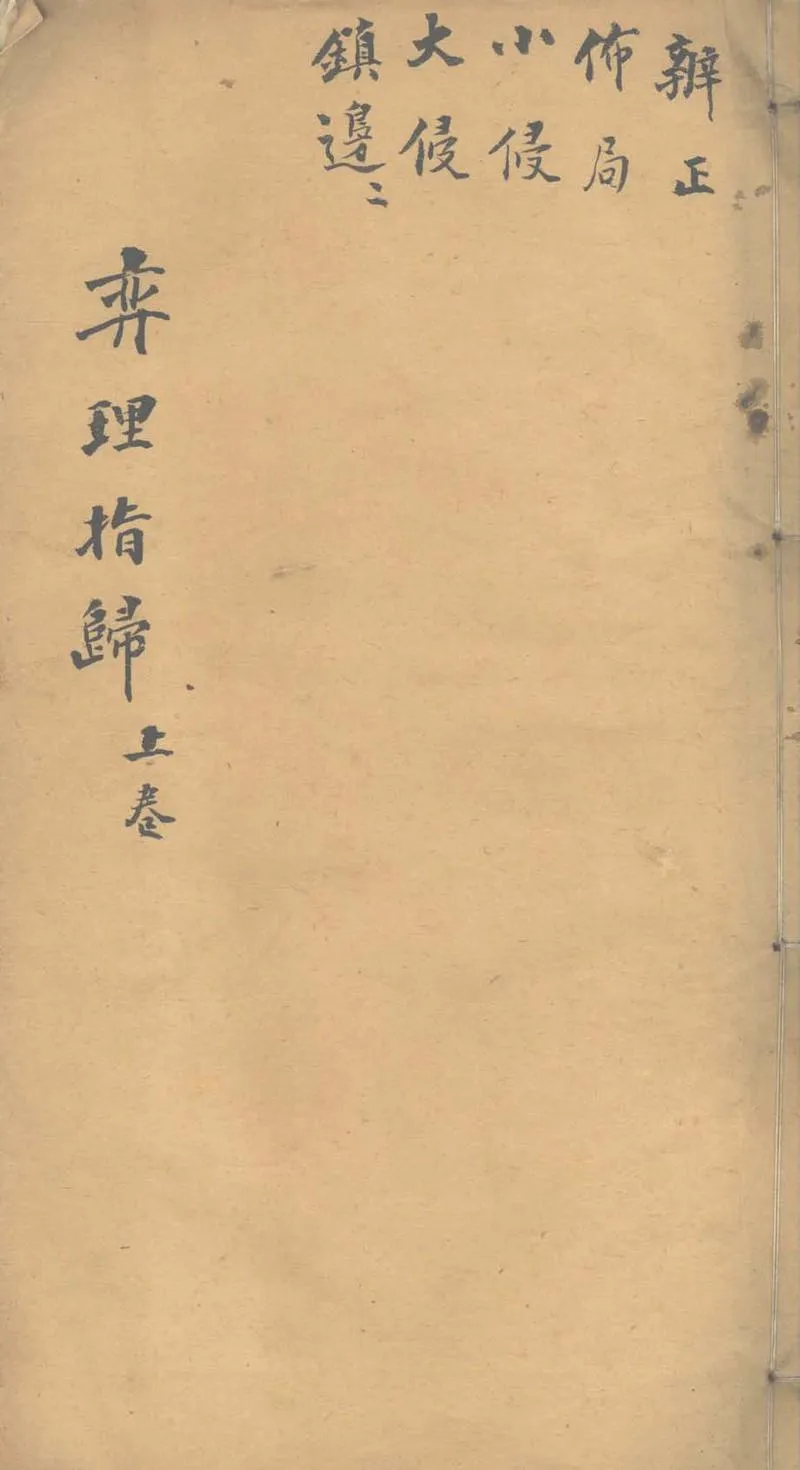 辦正
佈局
小侵
大侵
鎮邊二
弈理指歸
上卷